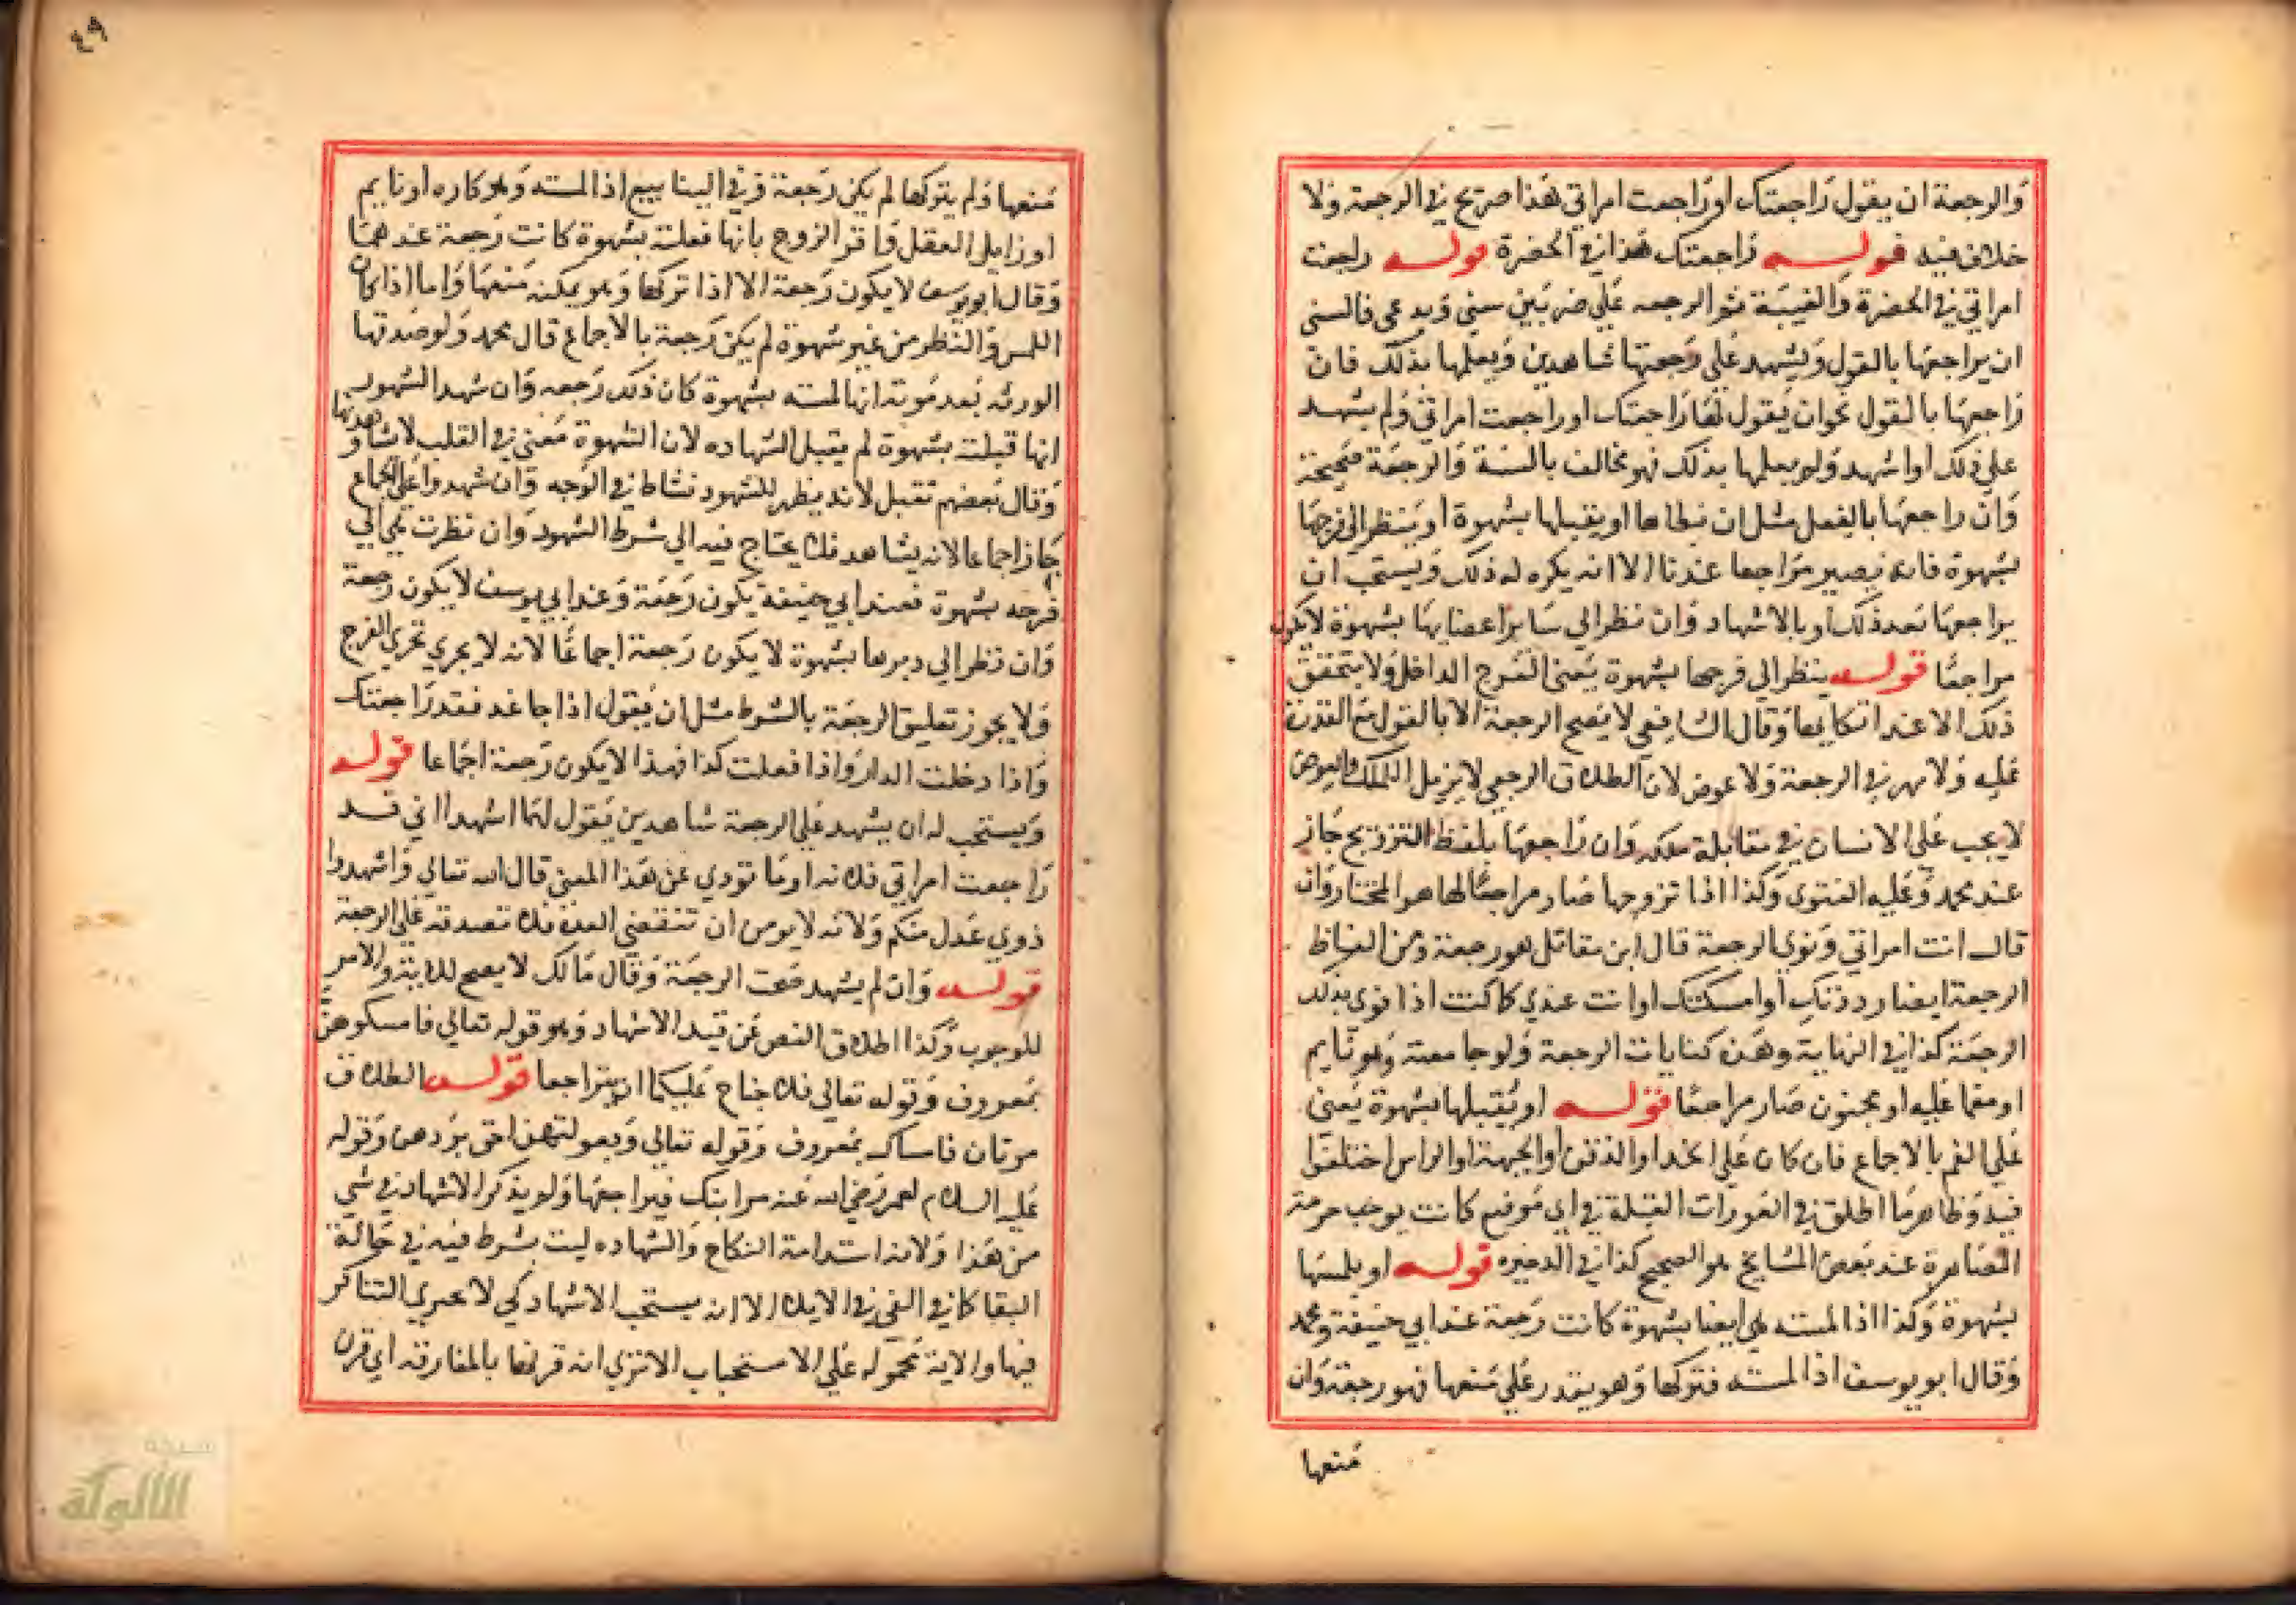 والرجعة ان يقول راجعتك او راجعت امراتي هذا صريح في الرجعة ولا
خلاف فيه قوله راجعتك هذا في الحضرة قوله راجعت
امراتي في الحضرة والغيبة ثم الرجعه علي ضربين سني وبدعي فالسني
ان يراجعها بالقول ويشهد علي رجعتها شاهدين ويعلمها بذلك فان
راجعها بالقول نحو ان يقول لها راجعتك او راجعت امراتي ولم يشهد
علي ذلك او اشهد ولم يعلمها بذلك فهو مخالف بالسنة والرجعة صحيحة
وان راجعها بالفعل مثل ان يطاها او يقبلها بشهوة او ينظر الي فرجها
بشهوة فانه يصير مراجعا عندنا الا انه يكره له ذلك ويستحب ان
يراجعها بعد ذلك او بالاشهاد وان نظر الي ساير اعضايها بشهوة لا يكون
مراجعا قوله ينظر الي فرجها بشهوة يعني الفرج الداخل ولا يتحقق
ذلك الا عند اتكايها وقال الشافعي لا يصح الرجعة الا بالقول مع القدرة
عليه ولا مهر في الرجعة ولا عوض لان الطلاق الرجعي لا يزيل الملك والعوض
لا يجب علي الانسان في مقابلة ملكه وان راجعها بلفظ التزويج جاز
عند محمد وعليه الفتوي وكذا اذا تزوجها صار مراجعا لها هو المختار وان
قال انت امراتي ونوي الرجعة قال ابن مقاتل هو رجعة ومن الفاظ
الرجعة ايضا رددتك او امسكتك او انت عندي كما كنت اذا نوي بذلك
الرجعة كذا في النهاية وهن كنايات الرجعة ولو جامعته وهو نايم
او مغما عليه او مجنون صار مراجعا قوله او يقبلها بشهوة يعني
علي الفم بالاجماع فان كان علي الخد او الذقن او الجبهة او الراس اختلفوا
فيه وظاهر ما اطلق في العورات القبلة في اي موضع كانت يوجب حرمة
المصاهرة عند بعض المشايخ هو الصحيح كذا في الدخيره قوله او يلمسها
بشهوة وكذا اذا لمسته هي ايضا بشهوة كانت رجعة عند ابي حنيفة ومحمد
وقال ابو يوسف اذا لمسته فتركها وهو يقدر علي منعها فهو رجعة وان
منعها
٤٩
منعها ولم يتركها لم يكن رجعة وفي الينابيع اذا لمسته وهو كاره او نايم
او زايل العقل واقر الزوج بانها فعلته بشهوة كانت رجعة عندهما
وقال ابو يوسف لا يكون رجعة الا اذا تركها وهو يمكنه منعها واما اذا كان
اللمس والنظر من غير شهوة لم يكن رجعة بالاجماع قال محمد ولو صدقتها
الورثه بعد موته انها لمسته بشهوة كان ذلك رجعه وان شهد الشهود
انها قبلته بشهوة لم يقبل الشهاده لان الشهوة معني في القلب لا يشاهدونها
وقال بعضهم تقبل لانه يظهر للشهود نشاط في الوجه وان شهدوا علي الجماع
جاز اجماعا لانه يشاهد فلا يحتاج فيه الي شرط الشهود وان نظرت هي الي
فرجه بشهوة فعند ابي حنيفة يكون رجعة وعند ابي يوسف لا يكون رجعة
وان نظر الي دبرها بشهوة لا يكون رجعة اجماعا لانه لا يجري مجري الفرج
ولا يجوز تعليق الرجعة بالشرط مثل ان يقول اذا جا غد فقد راجعتك
واذا دخلت الدار واذا فعلت كذا فهذا لا يكون رجعة اجماعا قوله
ويستحب له ان يشهد علي الرجعة شاهدين يقول لهما اشهدا اني قد
راجعت امراتي فلانه او ما تودي عن هذا المعني قال الله تعالي واشهدوا
ذوي عدل منكم ولانه لا يومن ان تنقضي العدة فلا تصدقه علي الرجعة
قوله وان لم يشهد صحت الرجعة وقال مالك لا يصح للاية والامر
للوجوب وكذا اطلاق النص عن قيد الاشهاد وهو قوله تعالي فامسكوهن
بمعروف وقوله تعالي فلا جناح عليكما ان يتراجعا قوله الطلاق
مرتان فامساك بمعروف وقوله تعالي وبعولتهن احق بردهن وقوله
عليه السلام لعمر رضي الله عنه مر ابنك فيراجعها ولم يذكر الاشهاد في شي
من هذا ولانه استدامة النكاح والشهاده ليست بشرط فيه في حالة
البقا كما في الفي في الايلا الا انه يستحب الاشهاد كي لا يجري التناكر
فيها والاية محموله علي الاستحباب الا تري انه قرنها بالمفارقه اي قرن
شبكة
الألوكة